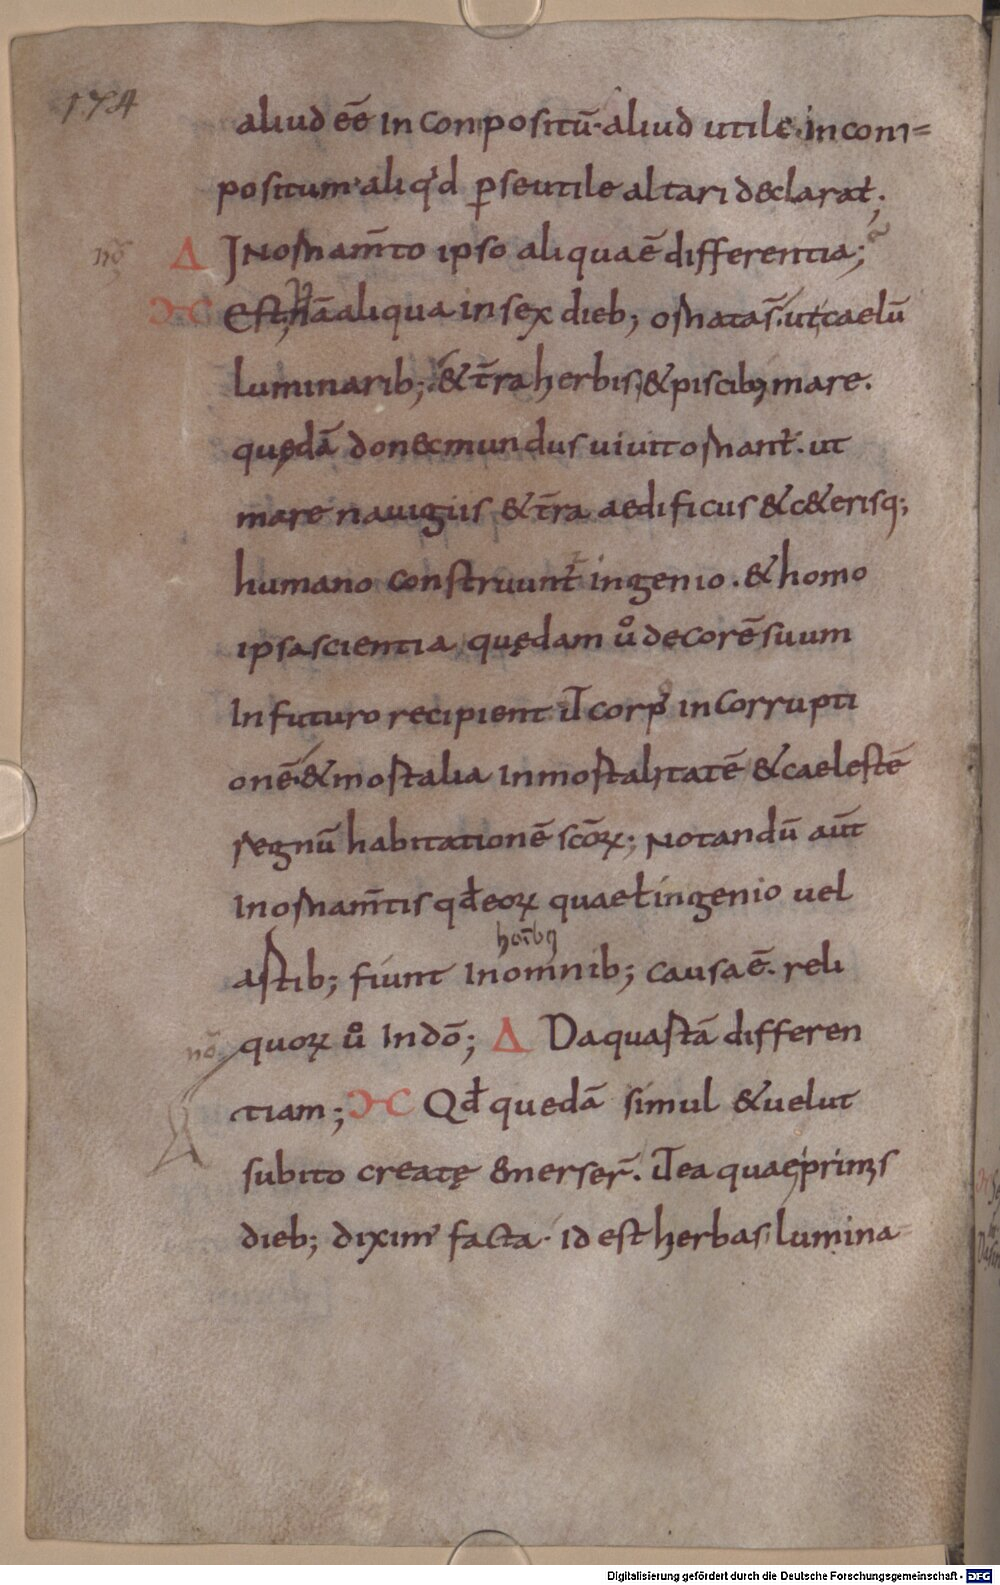 174
aliud eē in conpositū· aliud utile· in com=
positum· aliq'd ꝑ se utile altari declarat̄;
nō Δ INornam̄to ipso aliqua ē differentia;
ƆC Est; Nā aliqua in sex dieb; ornata s̄· ut caelū
luminarib; & t̄ra herbis, & piscibꝫ mare.
quędā donec mundus uiuit ornant̄· ut
mare nauigiis & t̄ra aedificiis & c&erisq;
humano construunt̄ ingenio. & homo
ipsa scientia quędam ů decorē suum
In futuro recipient ił corp' incorrupti
onē· & mortalia inmortalitatē & caelestē
regnū habitationē sc̄oꝝ; Notandū aūt
In ornam̄tis qđ eoꝝ quae ł ingenio uel
hoībꝫ
artib; fiunt In omnib; causa ē. reli
nō quoꝝ ů In dō; Δ Da quartā differen
tiam; ƆC Qđ quedā simul & uelut
subito creatę emerser̄. ił ea quae primis
dieb; dixim' facta· id est herbas, lumina-
Digitalisierung gefördert durch die Deutsche Forschungsgemeinschaft - DFG